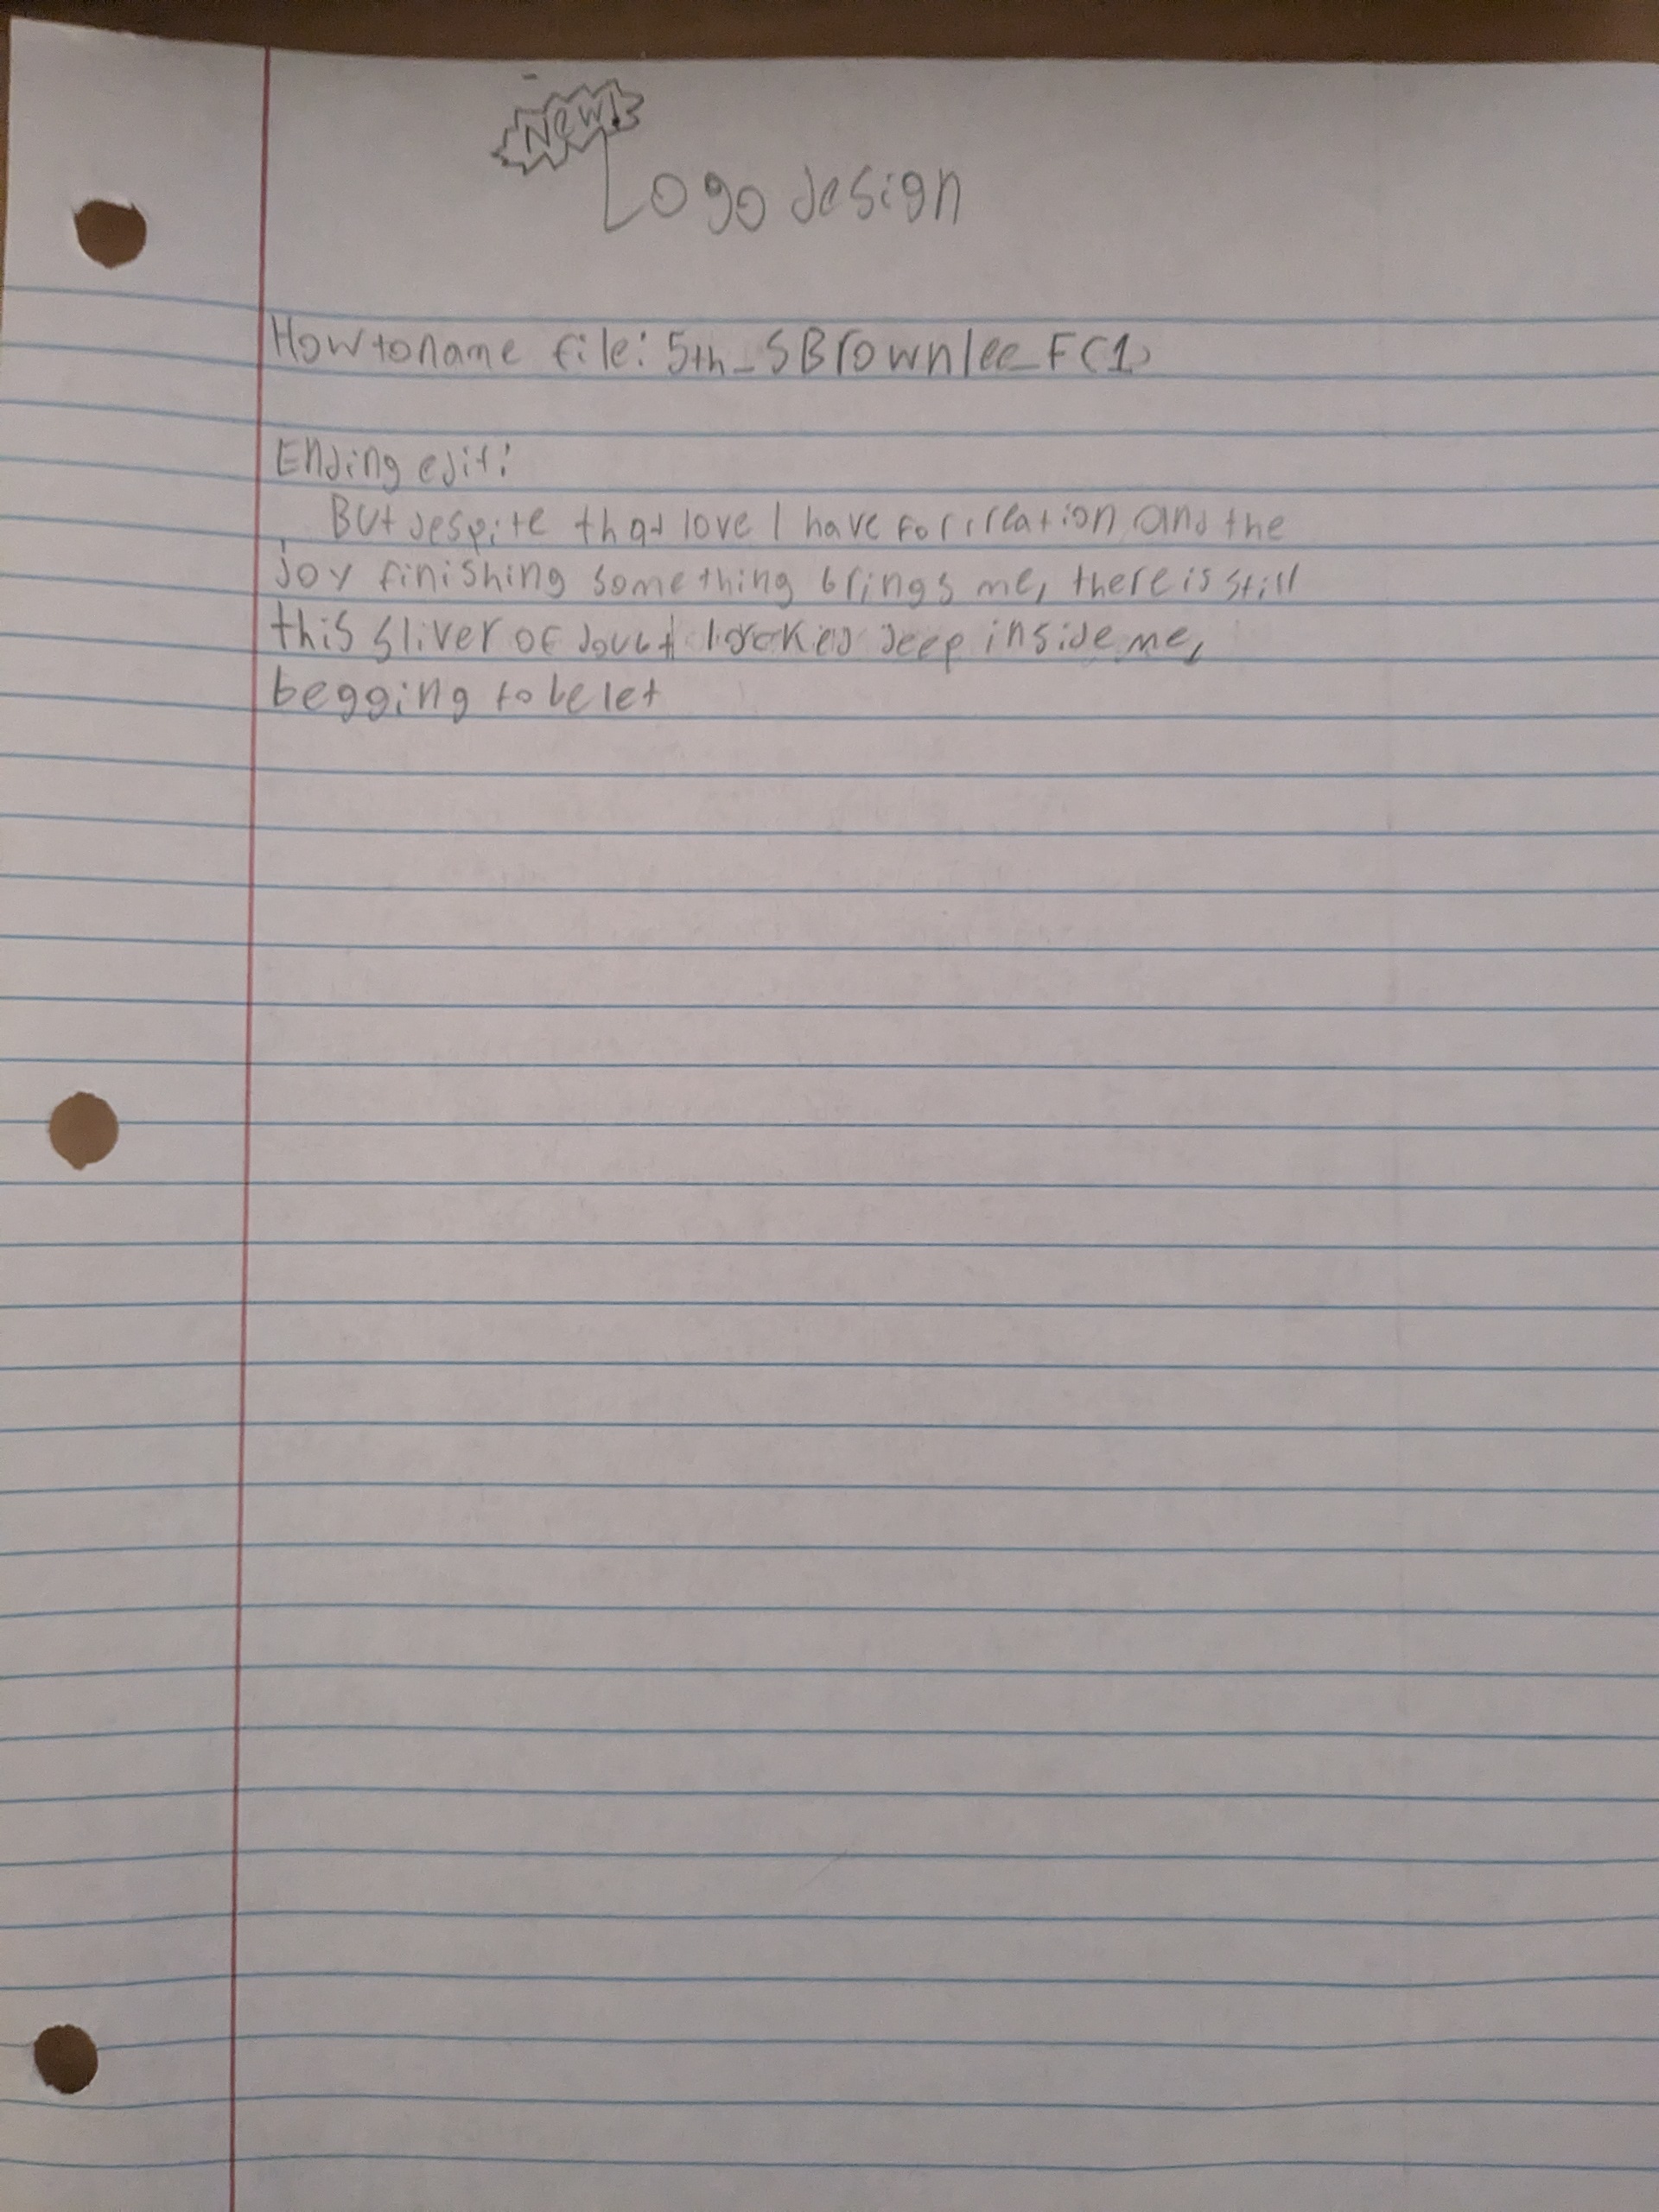 New!
Logo design
How to name file: 5th_SBrownlee_FC1)
Ending edit:
But despite that love I have for creation and the
joy finishing something brings me, there is still
this sliver of doubt locked deep inside me,
begging to be let